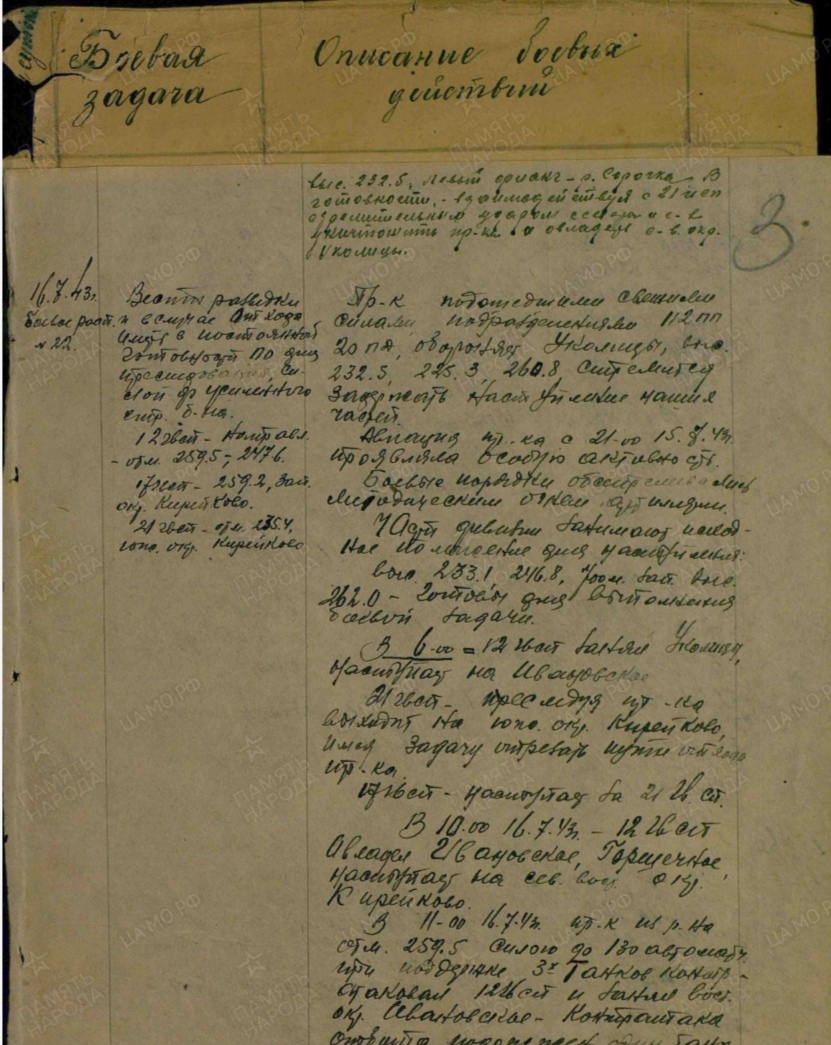 Боевая
задача
Описание боевых
действий
3
выс. 232.5, левый фланг - р. Сорочка. В
готовности, - взаимодействуя с 21 гсп
стремительным ударом с
уничтожить пр-ка и овладеть с-в. окр.
Уколицы.
16.7.43г.
боевое расп.
№ 22.
Вести разведку
и в случае отхода
быть в постоянной
готовности по для
преследования, си-
лой до усиленного
стр. б-на.
12 гвсп - направл.
- отм. 259.5, 247.6.
17 гвсп - 259.2, зап.
окр. Кирейково.
21 гвсп - отм. 235.4,
южн. окр. Кирейково
Пр-к подошедшими свежими
силами подразделениями 112 пп
20 пд, обороняет Уколицы, выс.
232.5, 225.3, 260.8, стремится
задержать наступление наших
частей.
Авиация пр-ка с 21.00 15.7.43г.
проявляла особую активность.
Боевые порядки обстреливались
методическим огнем артиллерии.
Части дивизии занимают исход-
ное положение для наступления:
выс. 233.1, 246.8, 700м. зап. выс.
262.0 - готовы для выполнения
боевой задачи.
В 6-00 - 12 гвсп занял Уколицы,
наступает на Ивановское
21 гвсп - преследуя пр-ка
выходит на южн. окр. Кирейково,
имея задачу отрезать пути отхода
пр-ка.
17 гвсп - наступает за 21 гв сп.
В 10.00 16.7.43г. - 12 гв сп
овладел Ивановское, Горшечное
наступает на сев. вост окр.
Кирейково.
В 11-00 16.7.43г. пр-к из р-на
отм. 259.5 силою до 130 автоматч.
при поддержке 3х танков контр-
атаковал 12 гв сп и занял вост.
окр. Ивановское - Контратака
отбита один танк